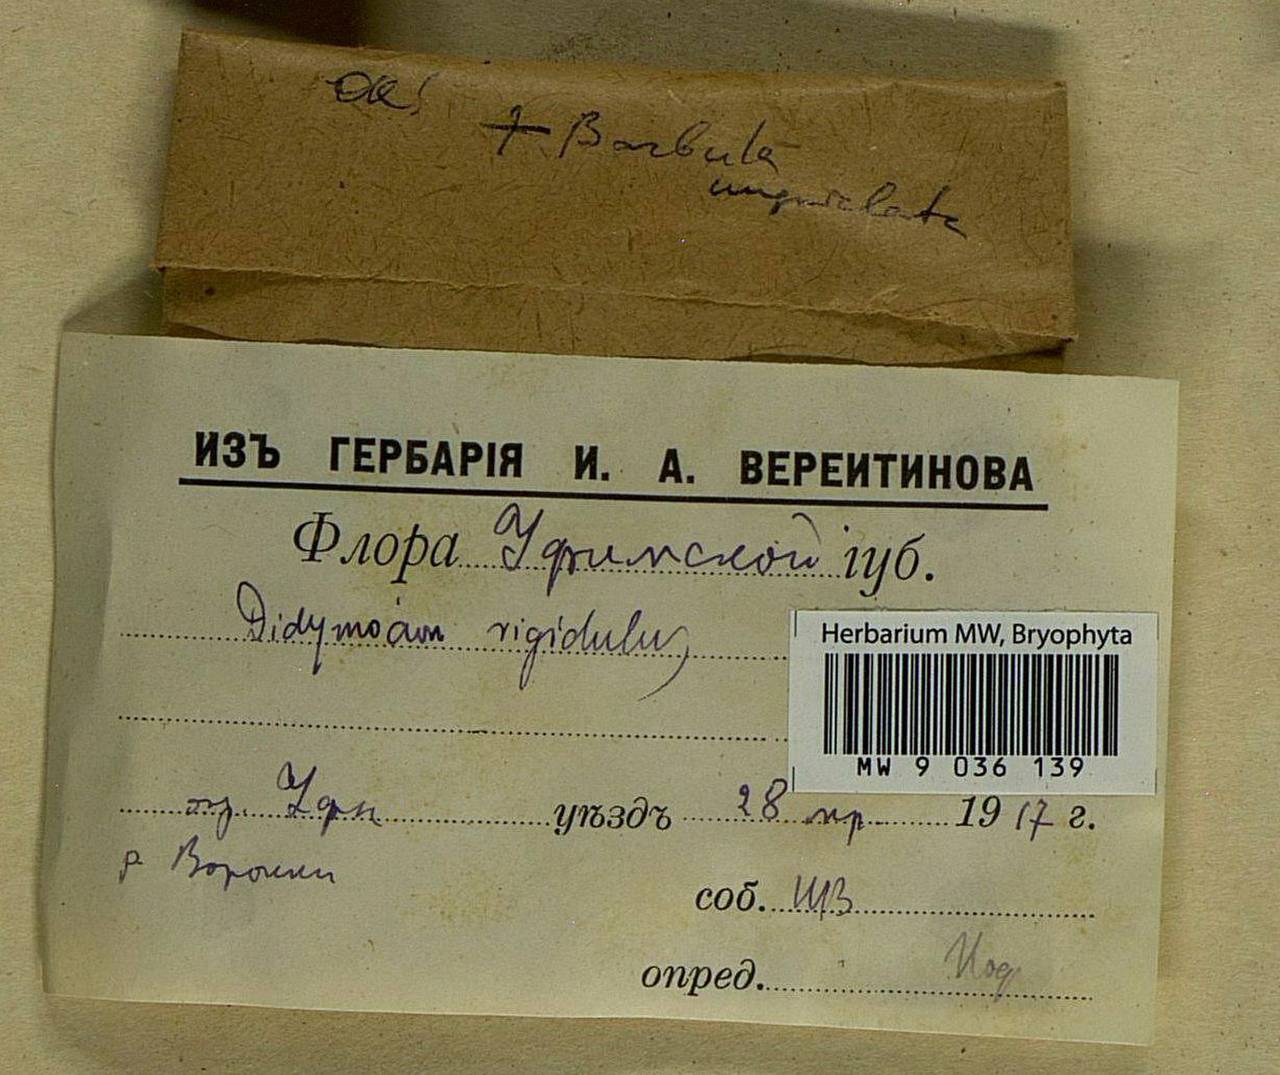 ok!
+ Barbula
unguiculata
ИЗЪ ГЕРБАРІЯ И. А. ВЕРЕИТИНОВА
Флора Уфимской губ.
Didymodon rigidulus
Herbarium MW, Bryophyta
MW 9 036 139
уѣздъ 28 1917 г.
р
соб. ИВ
опред.